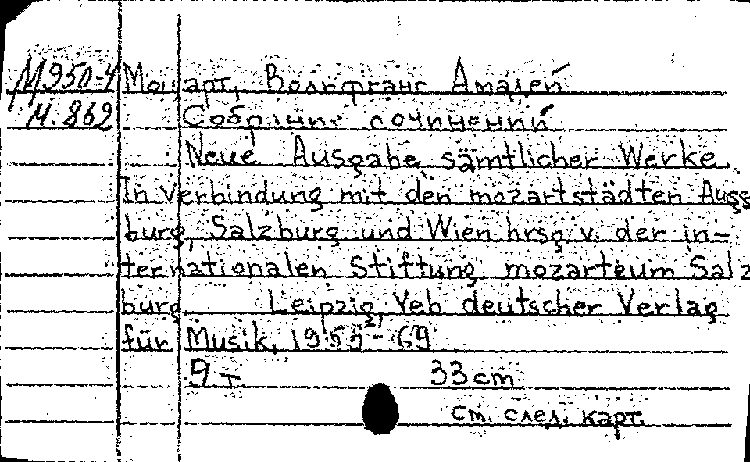 М950-4 Моцарт, Вольфганг Амадей
М.862 Собрание сочинений
Neue Ausgabe sämtlicher Werke
In Verbindung mit den mozartstädten Augs
burg, Salzburg und Wien hrsg v. der in-
ternationalen Stiftung mozarteum Salz
burg. Leipzig, Veb deutscher Verlag
für Musik, 1955-69
9 т. 33 cm
см. след. карт.